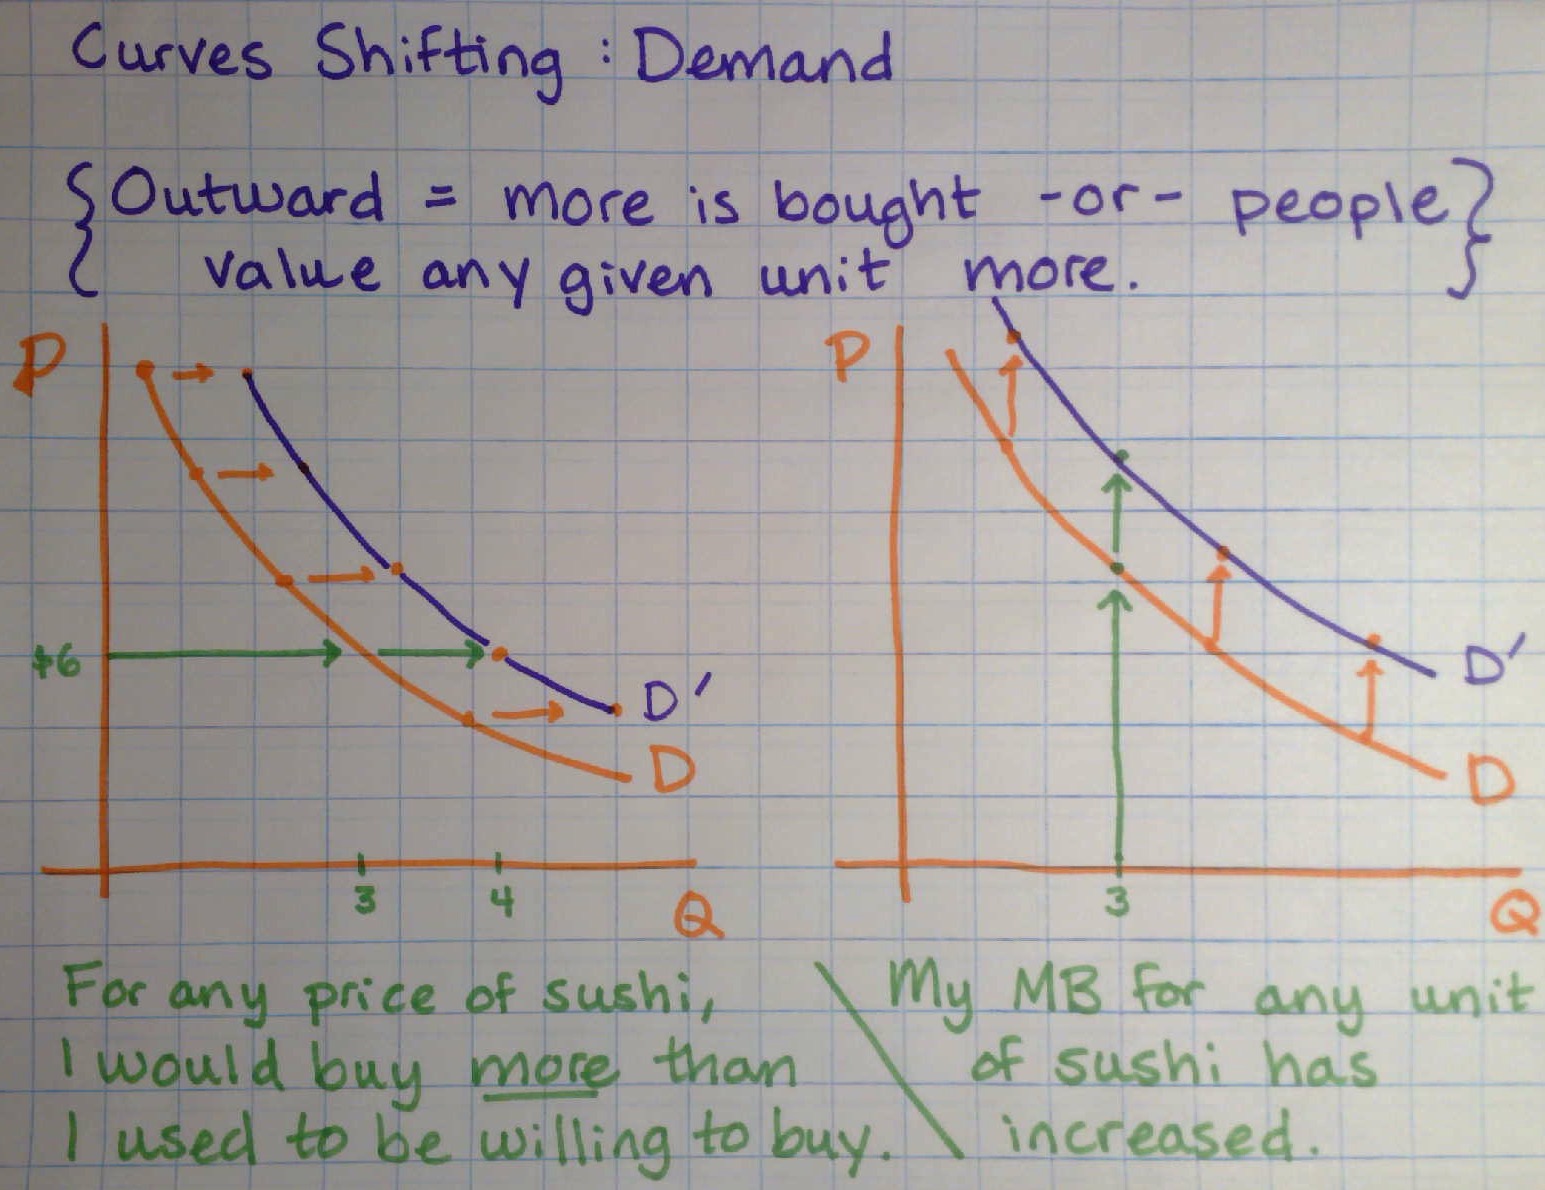 Curves Shifting : Demand
{Outward = more is bought -or- people}
value any given unit more.
P
$6
D'
D
3
4
Q
P
D'
D
3
Q
For any price of sushi,
I would buy more than
I used to be willing to buy.
My MB for any unit
of sushi has
increased.